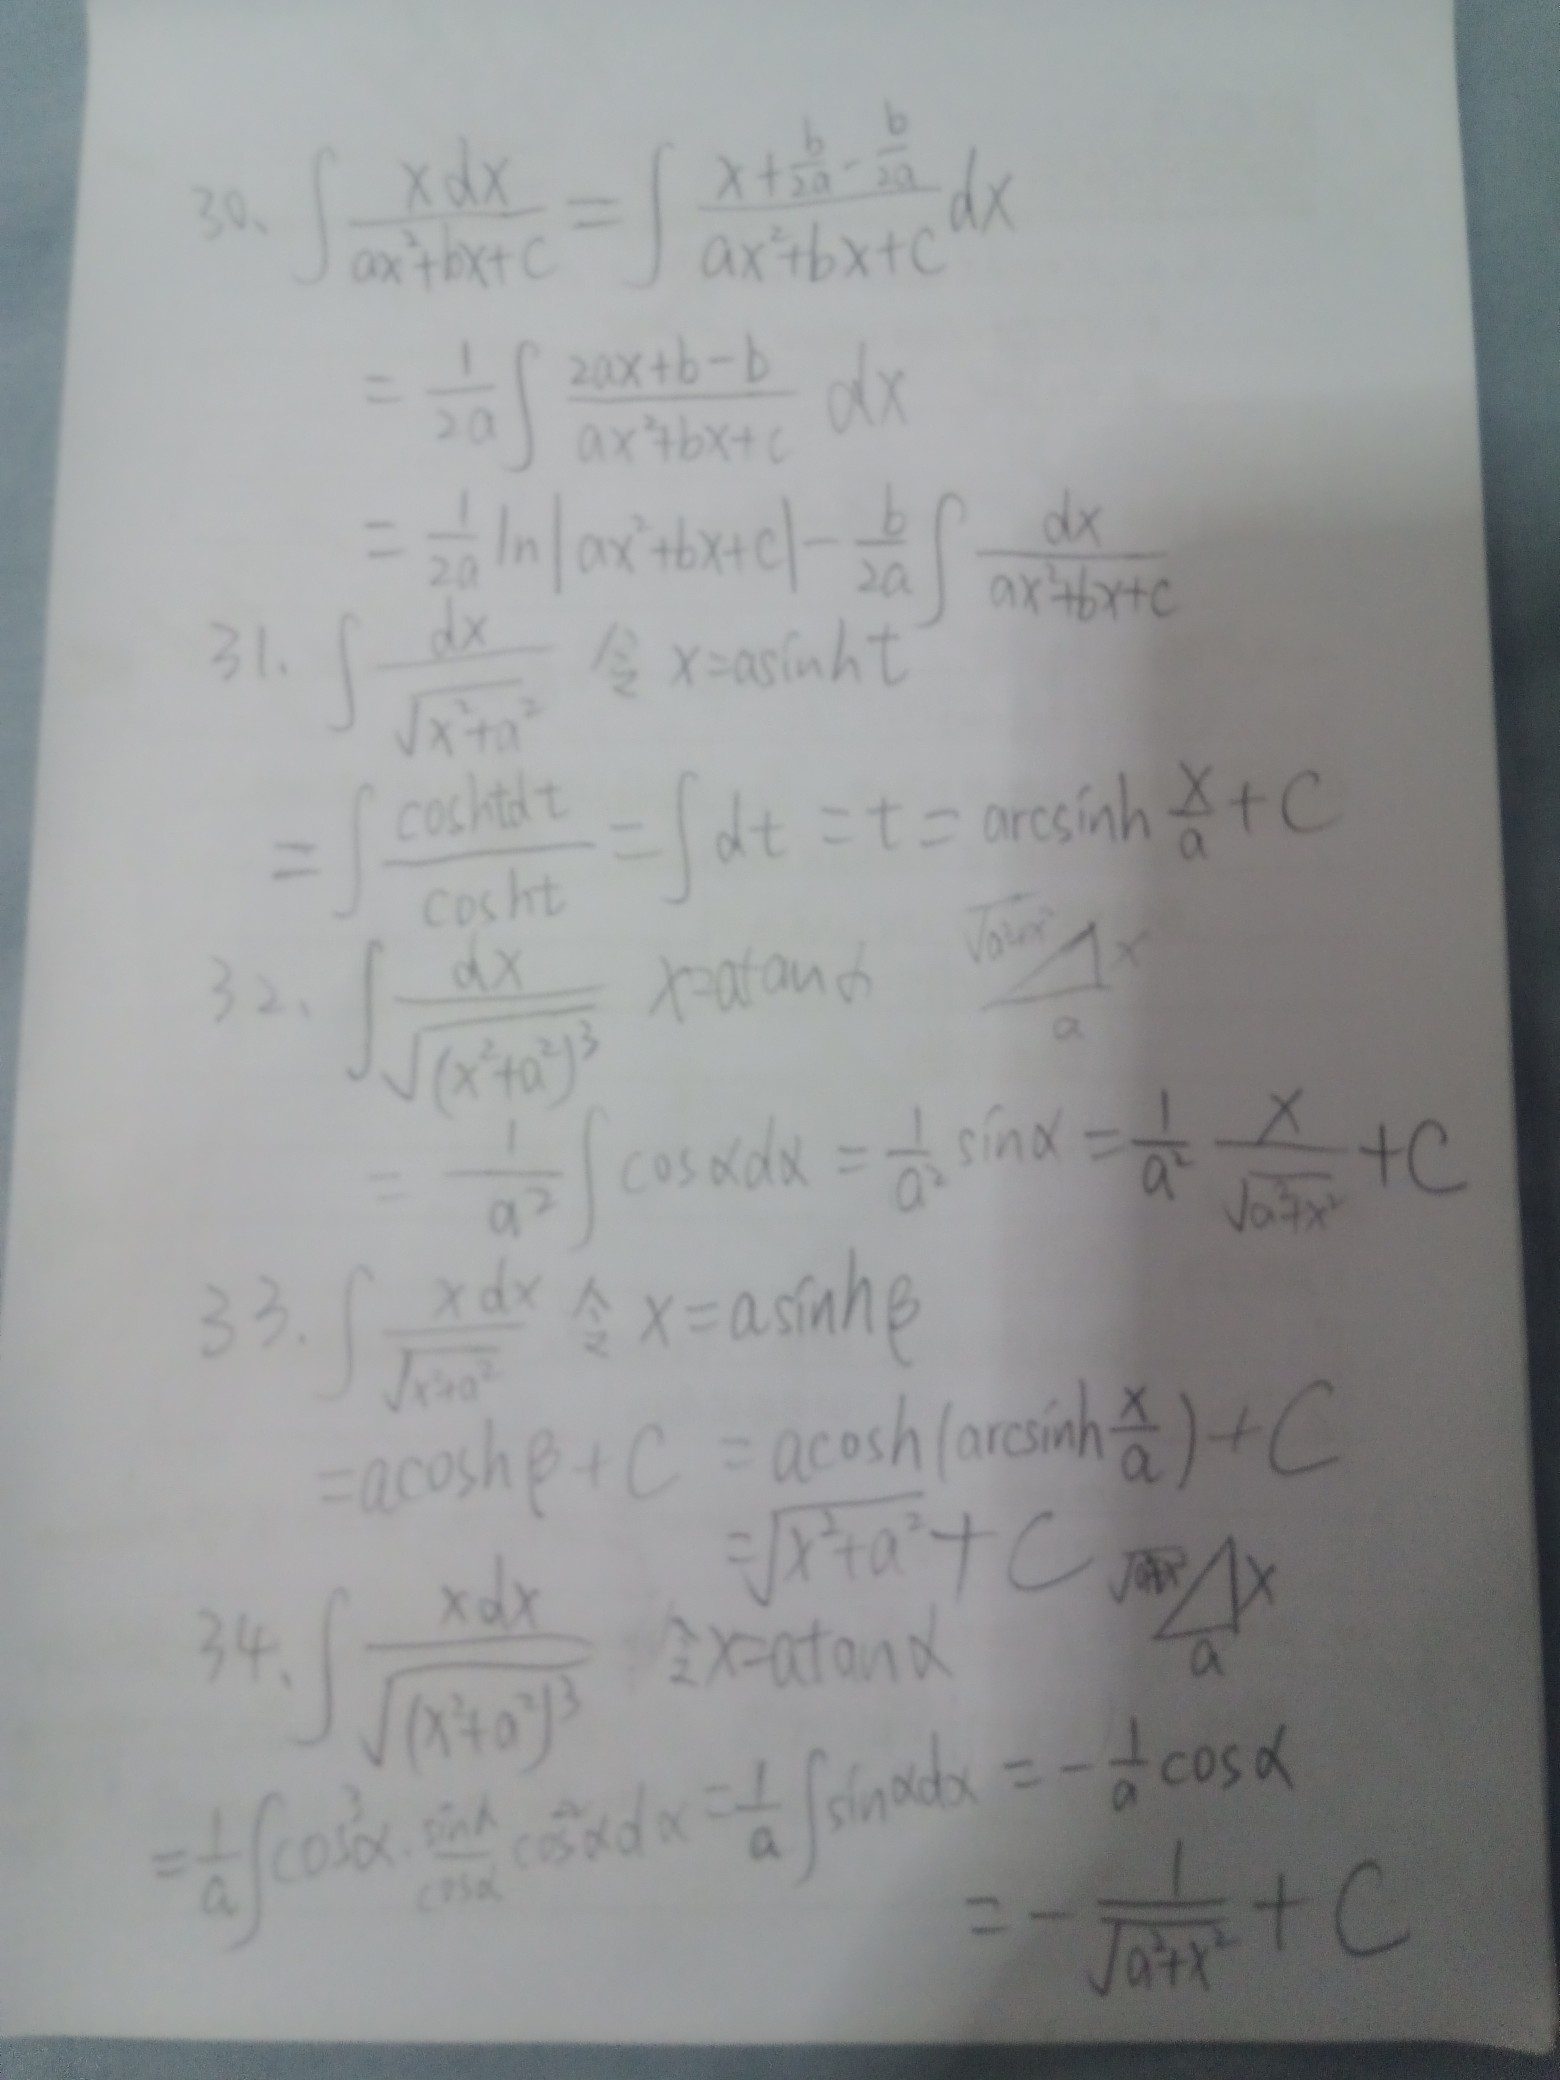 30、∫ xdx/(ax²+bx+c) = ∫ (x+b/2a-b/2a)/(ax²+bx+c) dx
= 1/2a ∫ (2ax+b-b)/(ax²+bx+c) dx
= 1/2a ln|ax²+bx+c| - b/2a ∫ dx/(ax²+bx+c)
31. ∫ dx/√(x²+a²) 令 x=asinht
= ∫ coshtdt/cosht = ∫dt = t = arcsinh x/a + C
32、∫ dx/√((x²+a²)³) x=atanα √(a²+x²) x
a
= 1/a² ∫cosαdα = 1/a² sinα = 1/a² x/√(a²+x²) + C
33. ∫ xdx/√(x²+a²) 令 x=asinhβ
=acoshβ+C = acosh(arcsinh x/a)+C
=√(x²+a²)+C
34、∫ xdx/√((x²+a²)³) 令x=atanα x
a
= 1/a ∫cos³α·sinα/cosα cos²αdα = 1/a ∫sinαdα = -1/a cosα
= -1/√(a²+x²) + C